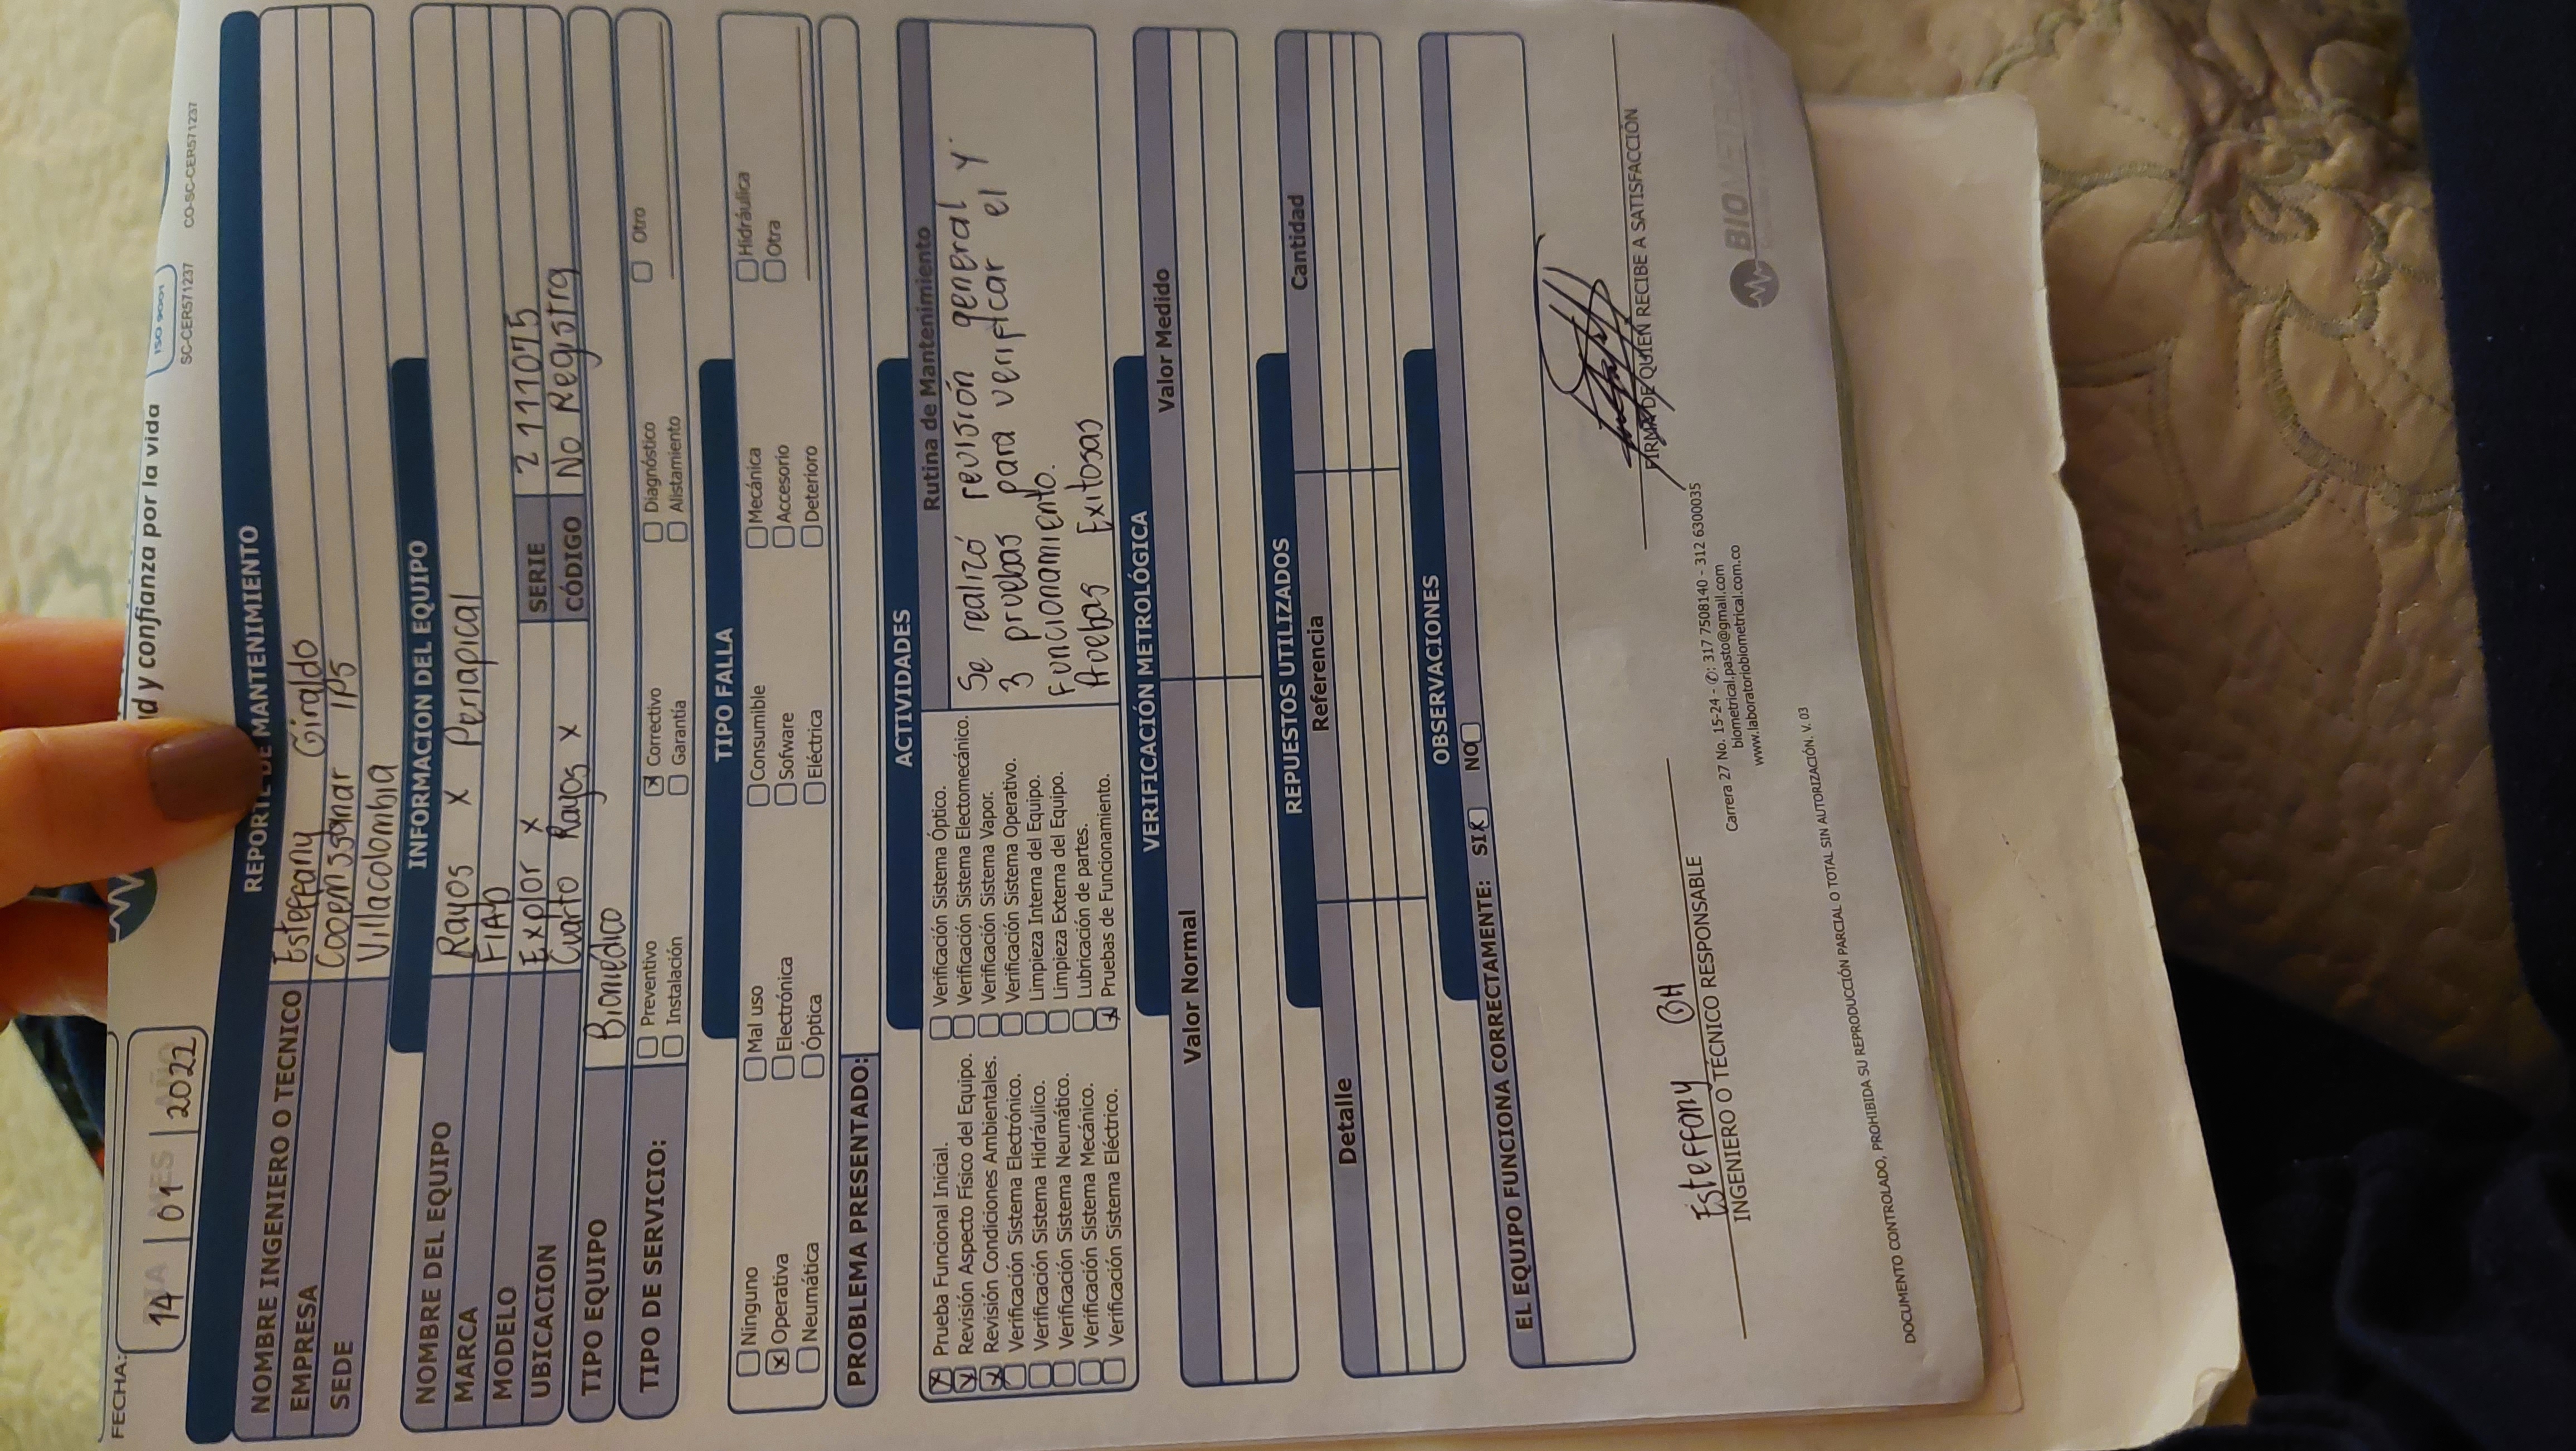 FECHA:
DIA MES AÑO
14 01 2022
d y confianza por la vida
ISO 9001
SC-CER571237 CO-SC-CER571237
REPORTE DE MANTENIMIENTO
NOMBRE INGENIERO O TECNICO Esteffany Giraldo
EMPRESA Cooemssanar IPS
SEDE Villacolombia
INFORMACION DEL EQUIPO
NOMBRE DEL EQUIPO Rayos x Periapical
MARCA FIAD
MODELO Explor x SERIE 2111075
UBICACION Cuarto Rayos x CÓDIGO No Registra
TIPO EQUIPO Biomédico
TIPO DE SERVICIO: Preventivo Correctivo Diagnóstico Otro
Instalación Garantía Alistamiento
TIPO FALLA
Ninguno Mal uso Consumible Mecánica Hidráulica
Operativa Electrónica Sofware Accesorio Otra
Neumática Óptica Eléctrica Deterioro
PROBLEMA PRESENTADO:
ACTIVIDADES
Prueba Funcional Inicial.
Revisión Aspecto Físico del Equipo.
Revisión Condiciones Ambientales.
Verificación Sistema Electrónico.
Verificación Sistema Hidráulico.
Verificación Sistema Neumático.
Verificación Sistema Mecánico.
Verificación Sistema Eléctrico.
Verificación Sistema Óptico.
Verificación Sistema Electomecánico.
Verificación Sistema Vapor.
Verificación Sistema Operativo.
Limpieza Interna del Equipo.
Limpieza Externa del Equipo.
Lubricación de partes.
Pruebas de Funcionamiento.
Rutina de Mantenimiento
Se realizó revisión general y
3 pruebas para verificar el
Funcionamiento.
Pruebas Exitosas
VERIFICACIÓN METROLÓGICA
Valor Normal Valor Medido
REPUESTOS UTILIZADOS
Detalle Referencia Cantidad
OBSERVACIONES
EL EQUIPO FUNCIONA CORRECTAMENTE: SI NO
Esteffany GH
INGENIERO O TÉCNICO RESPONSABLE
FIRMA DE QUIEN RECIBE A SATISFACCIÓN
Carrera 27 No. 15-24 - ✆: 317 7508140 - 312 6300035
biometrical.pasto@gmail.com
www.laboratoriobiometrical.com.co
BIOMETRICAL
DOCUMENTO CONTROLADO, PROHIBIDA SU REPRODUCCIÓN PARCIAL O TOTAL SIN AUTORIZACIÓN. V. 03